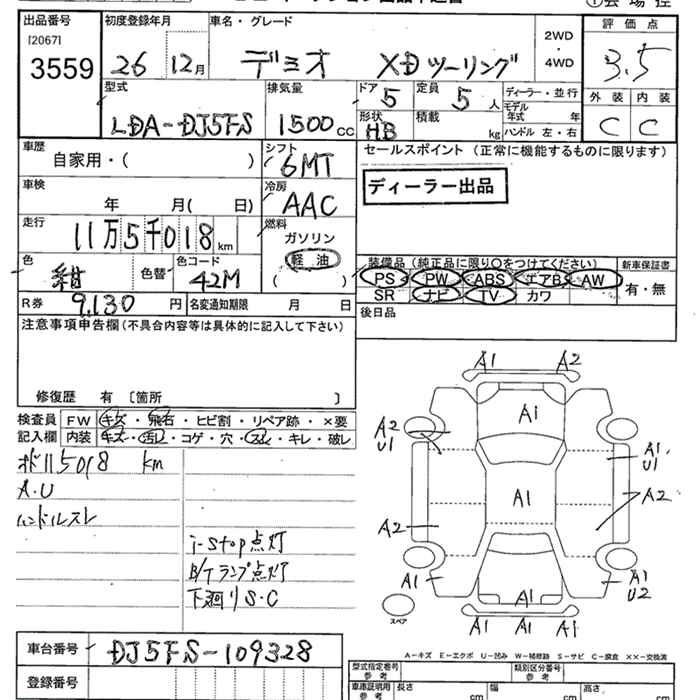 出品番号 初度登録年月 車名・グレード 評価点
[2067]
3559 26 12月 デミオ XDツーリング 2WD・4WD 3.5
型式 排気量 ドア 定員 ディーラー・並行 外装 内装
LDA-DJ5FS 1500cc 5 5人 モデル年式 年 C C
形状 積載
HB kg ハンドル 左・右
車歴 シフト セールスポイント (正常に機能するものに限ります)
自家用・( ) 6MT
車検 冷房 ディーラー出品
年 月( 日) AAC
走行 燃料
11万5千018km ガソリン
軽油
( )
色 色替 色コード 装備品 (純正品に限り〇をつけてください) 新車保証書
紺 42M PS PW ABS エアB AW 有・無
SR ナビ TV カワ
R券 9,130円 名変通知期限 月 日 後日品
注意事項申告欄(不具合内容等は具体的に記入して下さい)
修復歴 有 〔箇所 〕
検査員 FW キズ・飛石・ヒビ割・リペア跡・×要
記入欄 内装 キズ・汚レ・コゲ・穴・スレ・キレ・破レ
メーター 115018 km
A.U
ハンドルスレ
i-stop点灯
B/Tランプ点灯
下廻りS・C
A1 A2
A1
A2 U1
A1 U1
A1
A2
A2
A1
A1
A1 U2
A1 A1 A1
スペア
A-キズ E-エクボ U-凹み W-補修跡 S-サビ C-腐食 ××-交換済
車台番号 DJ5FS-109328
登録番号
型式指定番号 参考 類別区分番号 参考
車庫証明用 参考 長さ cm 幅 cm 高さ cm